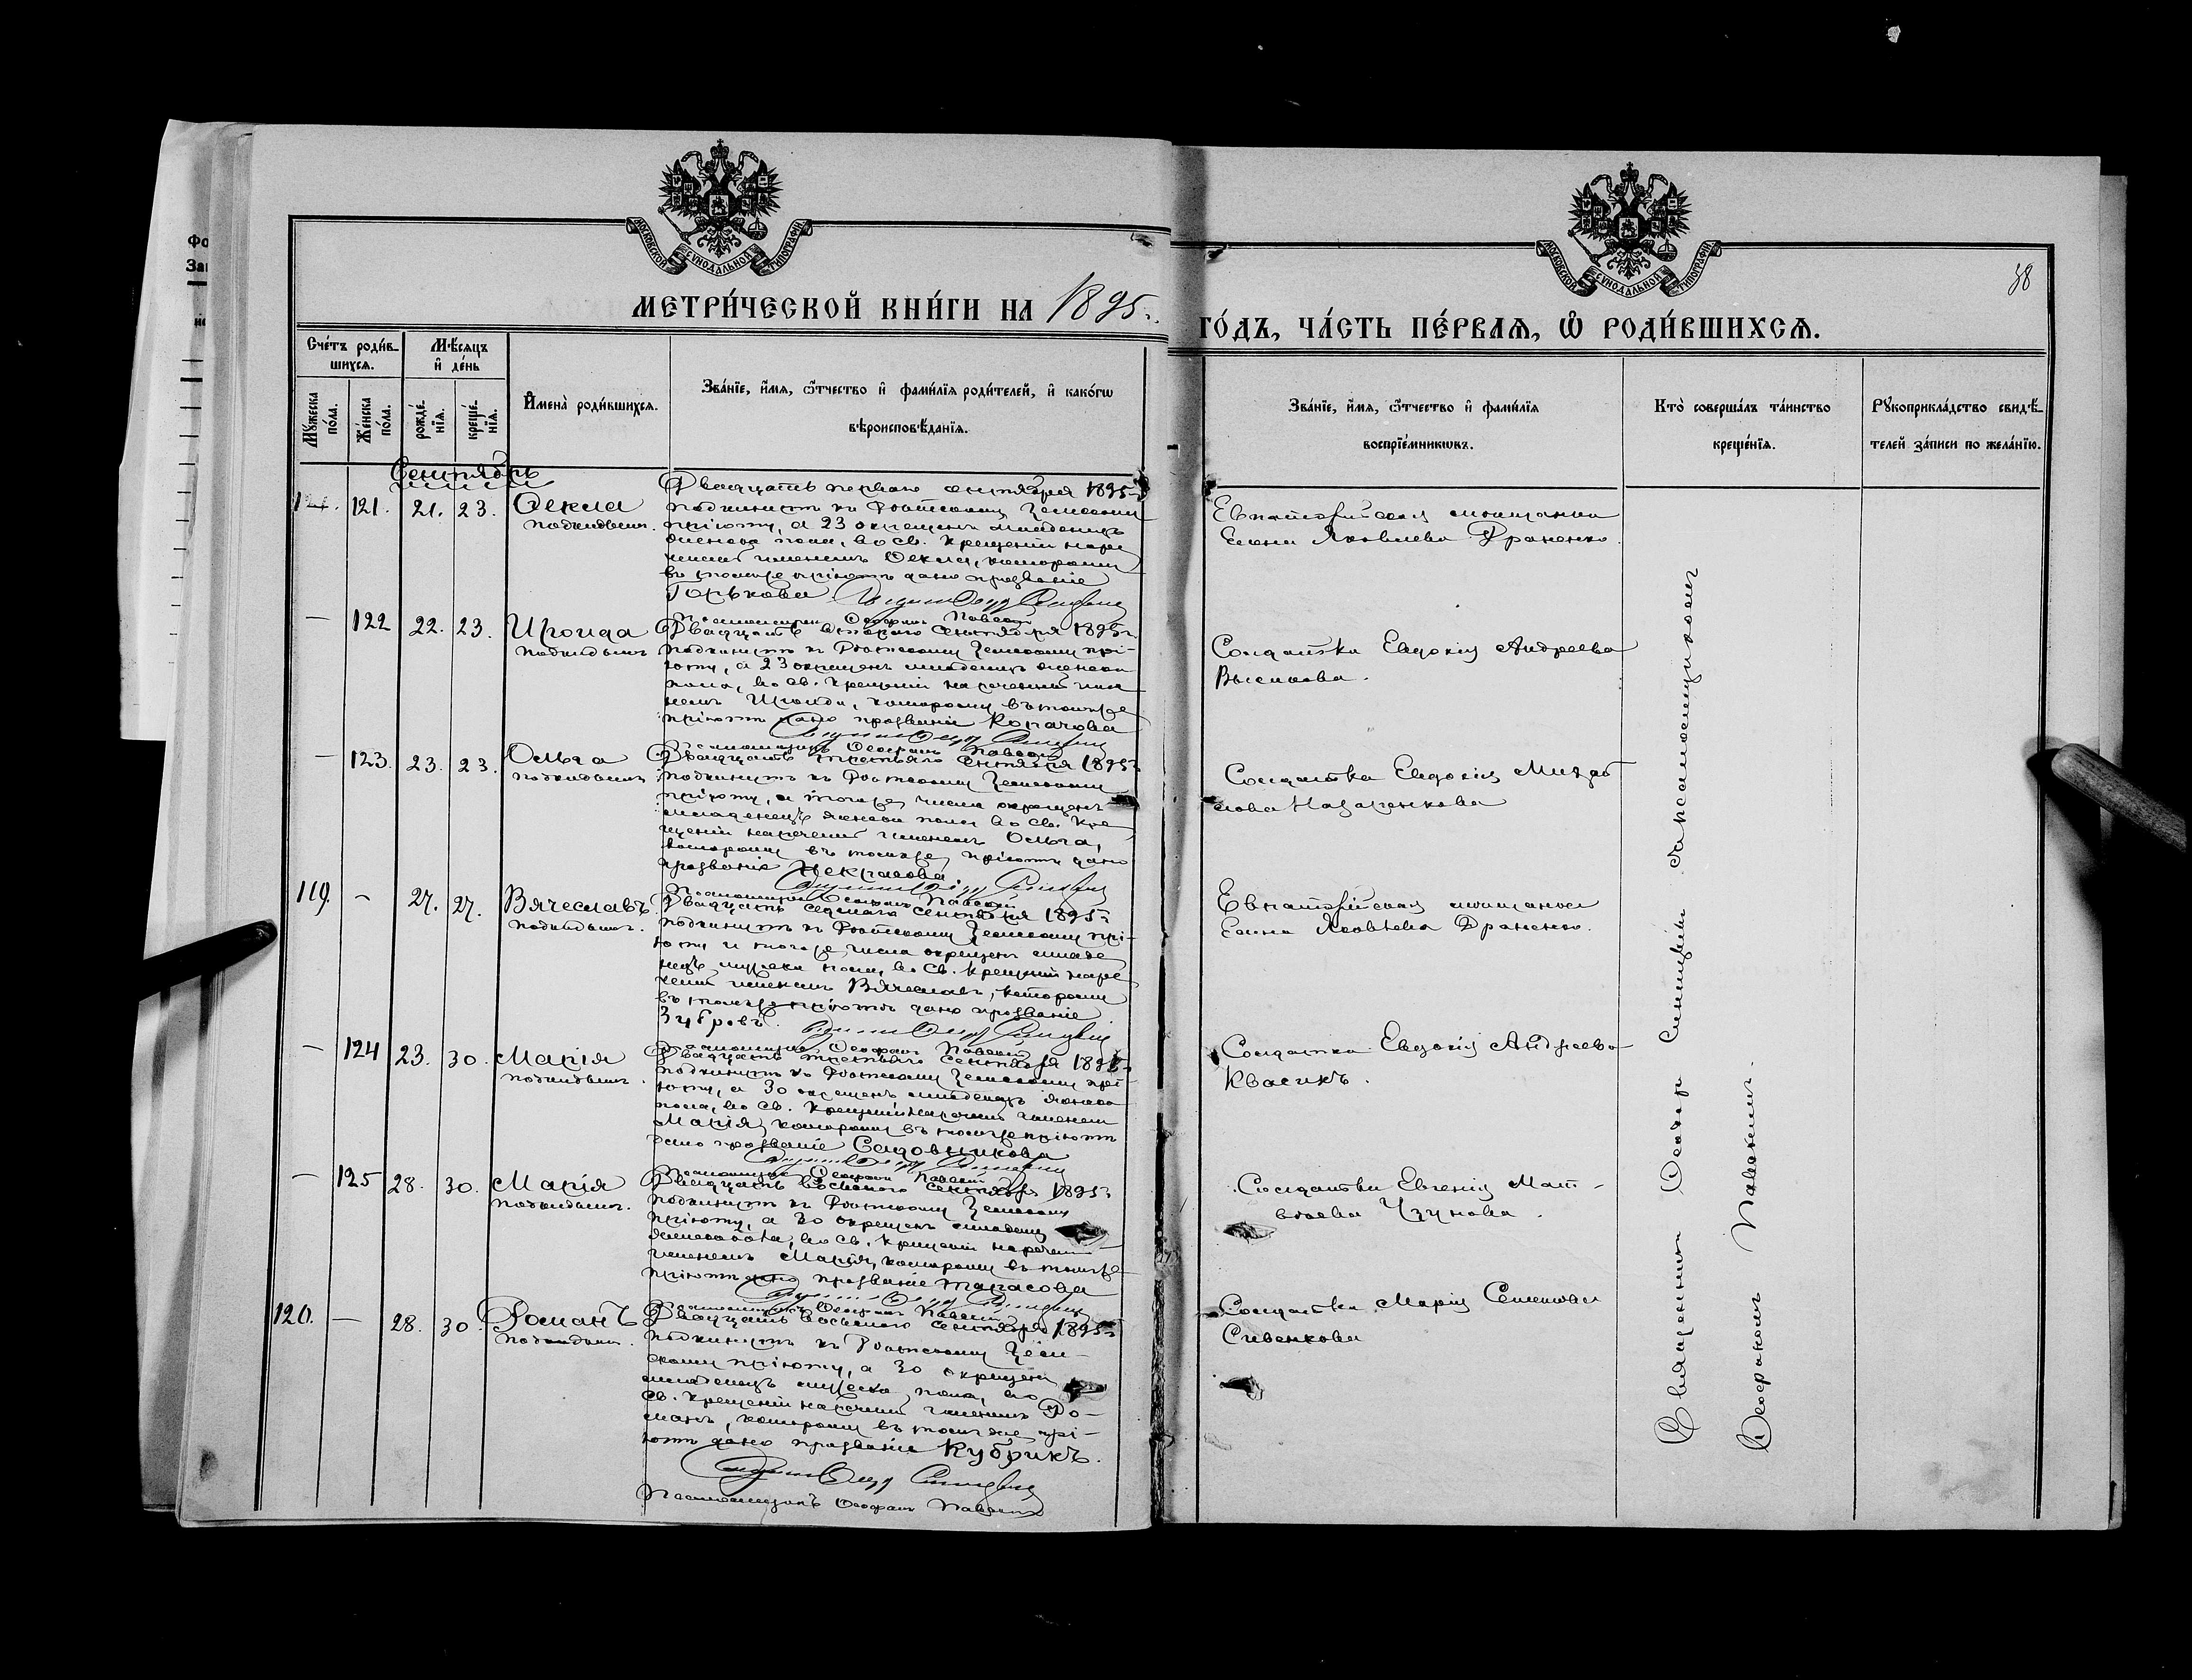 МОСКОВСКОЙ СУНОДАЛЬНОЙ ТИПОГРАФІИ
МОСКОВСКОЙ СУНОДАЛЬНОЙ ТИПОГРАФІИ
38
МЕТРИ́ЧЕСКОЙ КНИ́ГИ НА 1895
ГО́ДЪ, ЧА́СТЬ ПЕ́РВАѦ, Ѡ҆ РОДИ́ВШИХСѦ.
Сче́тъ роди́в-
шихсѧ.
Мѣ́сѧцъ
и҆ де́нь
Мꙋ́жеска по́ла.
Же́нска по́ла.
рожде́-
нїѧ.
креще́-
нїѧ.
И҆мена̀ роди́вшихсѧ.
Зва́нїе, и҆́мѧ, ѻ҆́тчество и҆ фами́лїѧ роди́телей, и҆ како́гѡ
вѣроисповѣ́данїѧ.
Зва́нїе, и҆́мѧ, ѻ҆́тчество и҆ фами́лїѧ
воспрїе́мникѡвъ.
Кто̀ соверша́лъ та́инство
креще́нїѧ.
Рꙋкоприкла́дство свидѣ́-
телей за́писи по жела́нїю.
Сентябрь
121. 21. 23. Ѳекла
подкидышъ.
Двадцать перваго сентября 1895 г.
подкинутъ къ Ростовскому Земскому
пріюту, а 23 окрещенъ младенецъ
женска пола, во св. крещеніи наре
ченный именемъ Ѳекла, которому
въ томъ же пріютѣ дано прозваніе
Горькова
Псаломщикъ Ѳеофанъ
Евпаторійская мѣщанка
Елена Яковлева Драненко.
— 122 22. 23. Ироида
подкидышъ
Двадцать втораго Сентября 1895 г.
подкинутъ къ Ростовскому Земскому прі-
юту, а 23 окрещенъ младенецъ женска
пола, во св. крещеніи нареченный име
немъ Ироида, которому въ томъ же
пріютѣ дано прозваніе Копачова
Псаломщикъ Ѳеофанъ
Солдатка Евдокія Андреева
— 123. 23. 23. Ольга
подкидышъ
Двадцать третьяго Сентября 1895 г.
подкинутъ къ Ростовскому Земскому
пріюту, а того же числа окрещенъ
младенецъ женска пола во св. кре
щеніи нареченный именемъ Ольга,
которому въ томъ же пріютѣ дано
прозваніе Некрасова
Псаломщикъ Ѳеофанъ
Солдатка Евдокія
Назаренкова
119. — 27. 27. Вячеславъ
подкидышъ.
Двадцать седьмаго Сентября 1895 г.
подкинутъ къ Ростовскому Земскому прі-
юту и того же числа окрещенъ младе
нецъ мужска пола, во св. крещеніи наре
ченный именемъ Вячеславъ, которому
въ томъ же пріютѣ дано прозваніе
Зубровъ.
Псаломщикъ Ѳеофанъ
Евпаторійская мѣщанка
Елена Яковлева Драненко.
— 124 23. 30. Марія
подкидышъ.
Двадцать третьяго Сентября 1895 г.
подкинутъ къ Ростовскому Земскому прі-
юту, а 30 окрещенъ младенецъ женска
пола, во св. крещеніи нареченный именемъ
Марія, которому въ томъ же пріютѣ
дано прозваніе Садовникова
Псаломщикъ Ѳеофанъ
Солдатка Евдокія Андреева
Квасикъ.
— 125 28. 30. Марія
подкидышъ.
Двадцать восьмого Сентября 1895 г.
подкинутъ къ Ростовскому Земскому
пріюту, а 30 окрещенъ младенецъ
женска пола, во св. крещеніи нареченный
именемъ Марія, которому въ томъ же
пріютѣ дано прозваніе Тарасова
Псаломщикъ Ѳеофанъ
Солдатка Евгенія Мат-
вѣева
120. — 28. 30. Романъ
подкидышъ.
Двадцать восьмого Сентября 1895 г.
подкинутъ къ Ростовскому Зем-
скому пріюту, а 30 окрещенъ
младенецъ мужска пола, во
св. крещеніи нареченный именемъ Ро-
манъ, которому въ томъ же прі-
ютѣ дано прозваніе Кубрикъ.
Псаломщикъ Ѳеофанъ
Солдатка Марія Семенова
Сивенкова
Священникъ Ѳеодоръ съ псаломщикомъ
Ѳеофаномъ